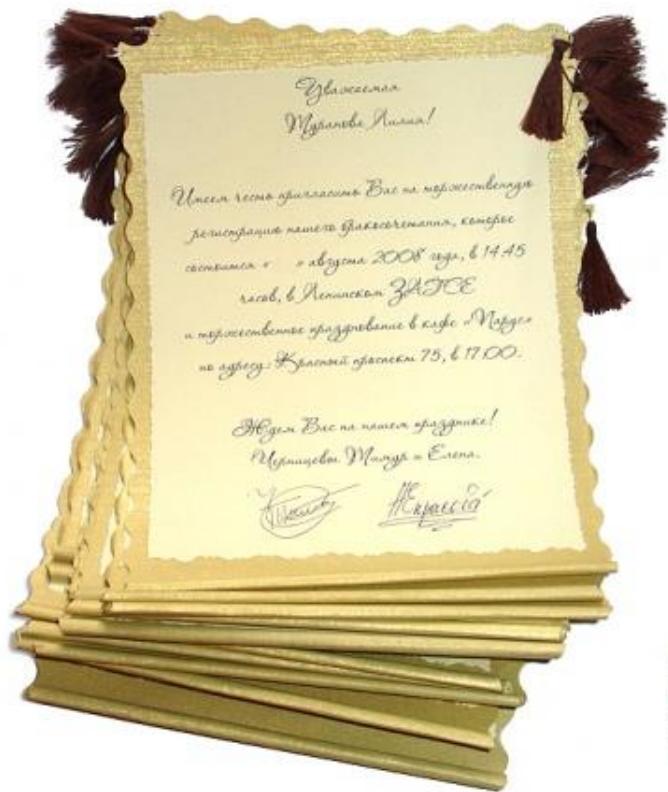 Уважаемая
Туранова Лилия!
Имеем честь пригласить Вас на торжественную
регистрацию нашего бракосочетания, которое
состоится « » августа 2008 года, в 14.45
часов, в Ленинском ЗАГСЕ
и торжественное празднование в кафе «Парус»
по адресу: Красный проспект 75, в 17.00.
Ждем Вас на нашем празднике!
Черницевы Тимур и Елена.